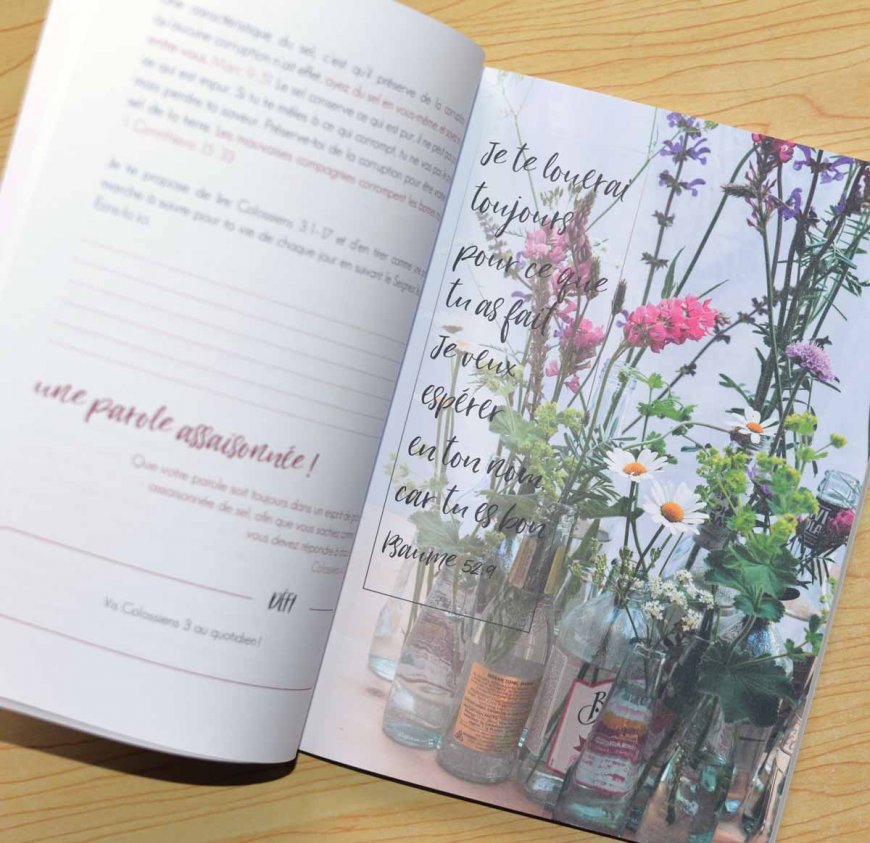 Une caractéristique du sel, c'est qu'il préserve de la
qu'aucune corruption n'ait effet. ayez du sel en vous-même, et ayez
entre vous. Marc 9: Le sel conserve ce qui est pur, il ne peut
ce qui est impur. Si tu te mêles à ce qui corrompt, tu ne vas pas
mais perdre ta saveur. Préserve-toi de la corruption pour être
sel de la terre. Les mauvaises compagnies corrompent les bonnes
1 Corinthiens 15: 33
Je te propose de lire Colossiens 3:1-17 et d'en tirer comme une
marche à suivre pour ta vie de chaque jour en suivant le Seigneur
Écris-la ici
une parole assaisonnée !
Que votre parole soit toujours dans un esprit de
assaisonnée de sel, afin que vous sachiez
vous devez répondre à
DÉFI
Vis Colossiens 3 au quotidien!
Je te louerai
toujours
pour ce que
tu as fait
Je veux
espérer
en ton nom
car tu es bon
Psaume 52:9